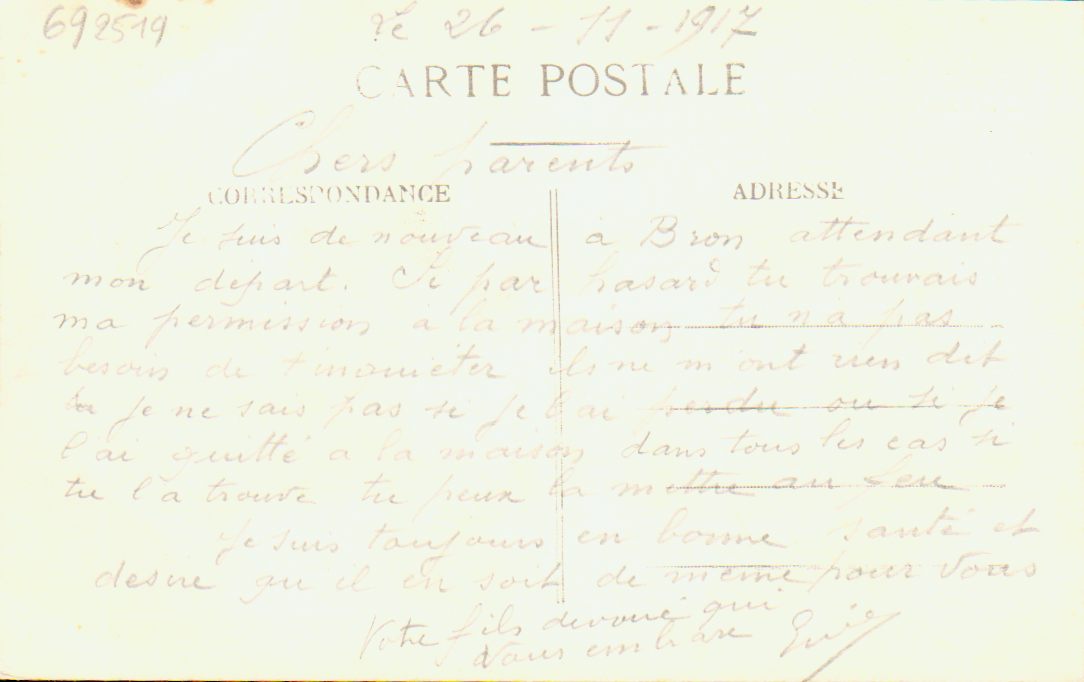 692519
Le 26 - 11 - 1917
CARTE POSTALE
Chers parents
CORRESPONDANCE
ADRESSE
Je suis de nouveau à Bron attendant
mon départ. Si par hasard tu trouvais
ma permission a la maison tu n'a pas
besoin de t'inquièter ils ne m'ont rien dit
je ne sais pas si je l'ai perdu ou si je
l'ai quitté a la maison dans tous les cas si
tu l'a trouve tu peux la mettre au feu
Je suis toujours en bonne santé et
desire qu'il en soit de même pour vous
Votre fils devoué qui
vous embrasse